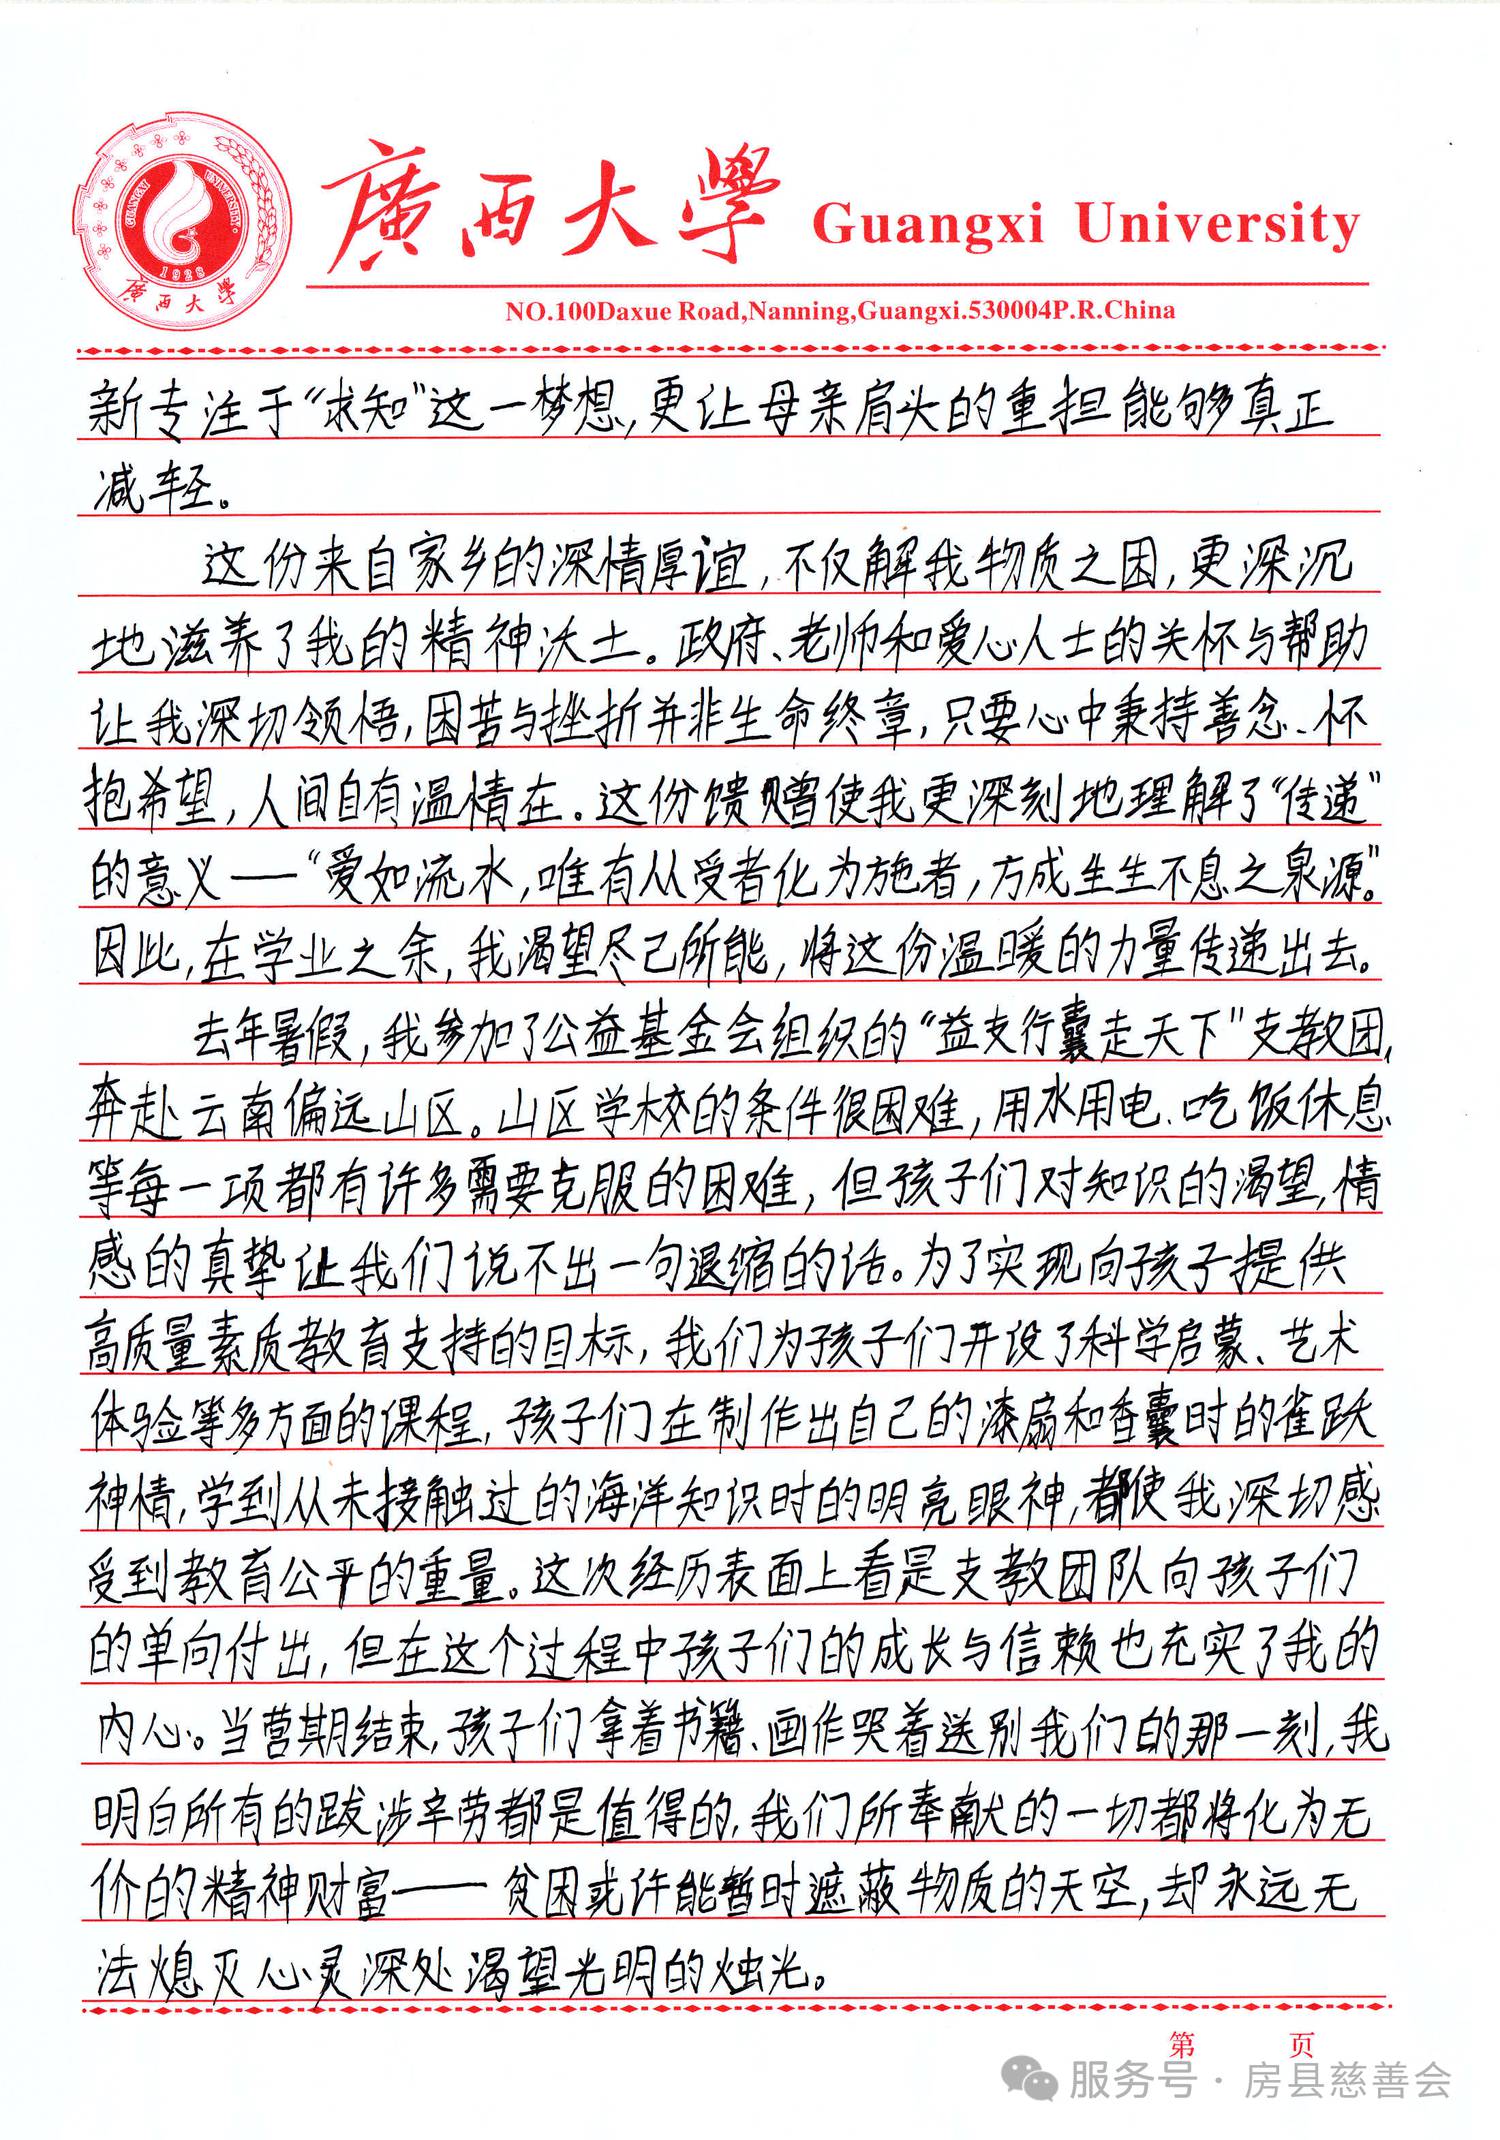 廣西大學 Guangxi University
GUANGXI UNIVERSITY
1928
廣西大學
NO.100Daxue Road,Nanning,Guangxi.530004P.R.China
新专注于“求知”这一梦想,更让母亲肩头的重担能够真正
减轻。
这份来自家乡的深情厚谊,不仅解我物质之困,更深沉
地滋养了我的精神沃土。政府、老师和爱心人士的关怀与帮助
让我深切领悟,困苦与挫折并非生命终章,只要心中秉持善念、怀
抱希望,人间自有温情在。这份馈赠使我更深刻地理解了“传递”
的意义——“爱如流水,唯有从受者化为施者,方成生生不息之泉源”。
因此,在学业之余,我渴望尽己所能,将这份温暖的力量传递出去。
去年暑假,我参加了公益基金会组织的“益支行囊走天下”支教团,
奔赴云南偏远山区。山区学校的条件很困难,用水用电、吃饭休息
等每一项都有许多需要克服的困难,但孩子们对知识的渴望,情
感的真挚让我们说不出一句退缩的话。为了实现向孩子提供
高质量素质教育支持的目标,我们为孩子们开设了科学启蒙、艺术
体验等多方面的课程,孩子们在制作出自己的漆扇和香囊时的雀跃
神情,学到从未接触过的海洋知识时的明亮眼神,都使我深切感
受到教育公平的重量。这次经历表面上看是支教团队向孩子们
的单向付出,但在这个过程中孩子们的成长与信赖也充实了我的
内心。当营期结束,孩子们拿着书籍、画作哭着送别我们的那一刻,我
明白所有的跋涉辛劳都是值得的,我们所奉献的一切都将化为无
价的精神财富——贫困或许能暂时遮蔽物质的天空,却永远无
法熄灭心灵深处渴望光明的烛光。
第 页
服务号·房县慈善会